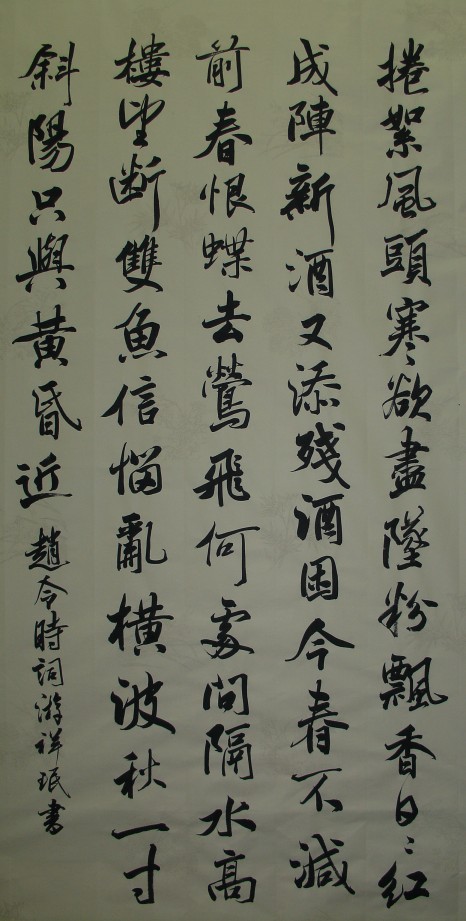 捲絮風頭寒欲盡墜粉飄香日〻紅
成陣新酒又添殘酒困今春不減
前春恨蝶去鶯飛何處問隔水高
樓望斷雙魚信惱亂橫波秋一寸
斜陽只與黃昏近
趙令時詞游祥珉書